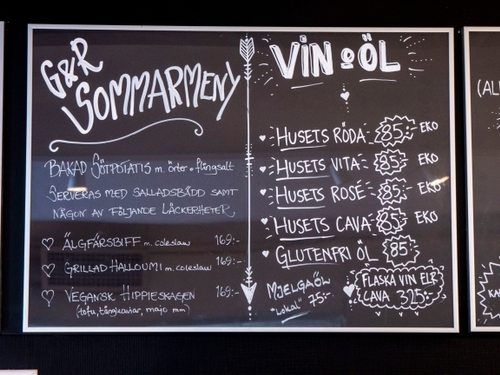 G&R
SOMMARMENY
BAKAD SÖTPOTATIS m. örter & flingsalt
SERVERAS MED SALLADSBÄDD SAMT
NÅGON AV FÖLJANDE LÄCKERHETER
ÄLGFÄRSBIFF m. coleslaw 169:-
GRILLAD HALLOUMI m. coleslaw 169:-
VEGANSK HIPPIESKAGEN 169:-
(tofu, tångkaviar, majo mm)
VIN & ÖL
HUSETS RÖDA 85:- EKO
HUSETS VITA 85:- EKO
HUSETS ROSÉ 85:- EKO
HUSETS CAVA 85:- EKO
GLUTENFRI ÖL 85:-
MJELGAÖL
"Lokal" 75:-
FLASKA VIN ELR
CAVA 325:-
(AL